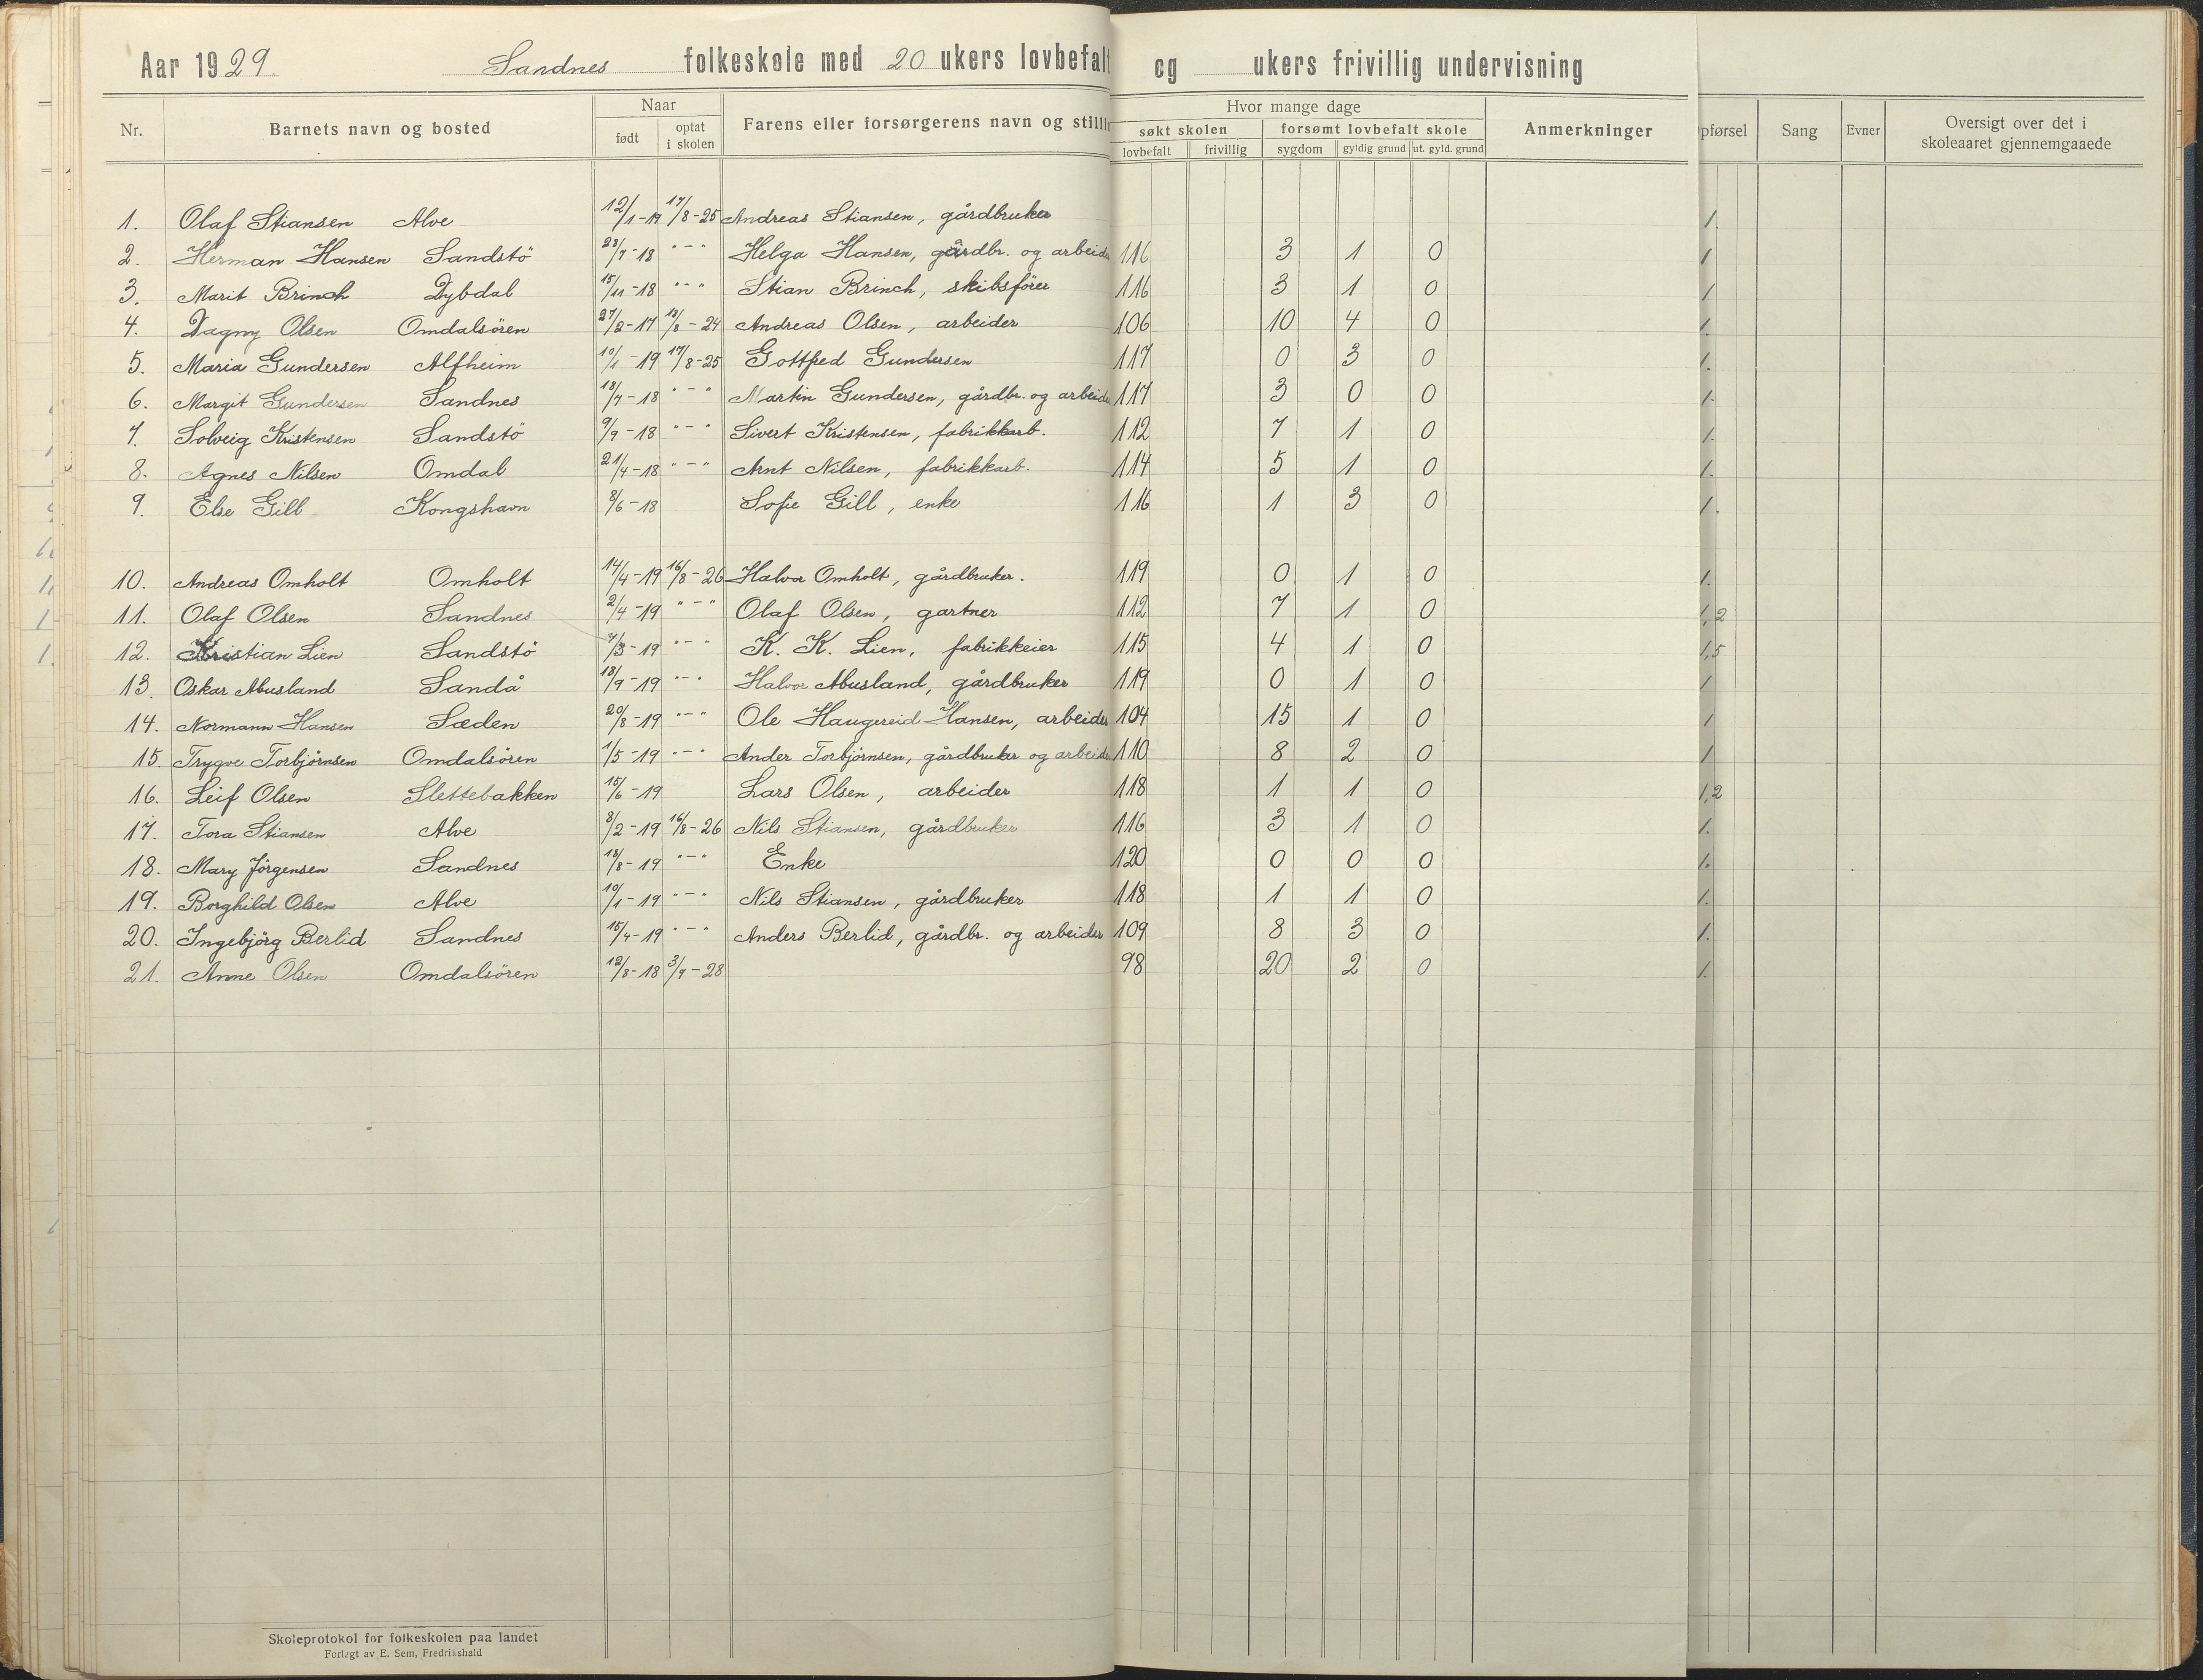 Aar 1929 Sandnes folkeskole med 20 ukers lovbefalt og ukers frivillig undervisning
Naar Hvor mange dage
Nr. Barnets navn og bosted født optat i skolen Farens eller forsørgerens navn og stilli søkt skolen forsømt lovbefalt skole Anmerkninger pførsel Sang Evner Oversigt over det i skoleaaret gjennemgaaede
lovbefalt frivillig sygdom gyldig grund ut. gyld. grund
1. Olaf Stiansen Alve 12/1-19 17/8-25 Andreas Stiansen, gårdbruker 1.
2. Herman Hansen Sandstö 23/7-18 "-" Helga Hansen, gårdbr. og arbeider 116 3 1 0 1
3. Marit Brinch Dybdal 15/11-18 "-" Stian Brinch, skibsfører 116 3 1 0 1
4. Dagny Olsen Omdalsören 27/2-17 18/8-24 Andreas Olsen, arbeider 106 10 4 0 1.
5. Maria Gundersen Alfheim 10/1-19 17/8-25 Gottfred Gundersen 117 0 3 0 1.
6. Margit Gundersen Sandnes 18/7-18 "-" Martin Gundersen, gårdbr. og arbeider 117 3 0 0 1.
7. Solveig Kristensen Sandstö 9/9-18 "-" Sivert Kristensen, fabrikkarb. 112 7 1 0 1.
8. Agnes Nilsen Omdal 21/4-18 "-" Arnt Nilsen, fabrikkarb. 114 5 1 0 1.
9. Else Gill Kongshavn 8/6-18 Sofie Gill, enke 116 1 3 0 1.
10. Andreas Omholt Omholt 14/4-19 16/8-26 Halvor Omholt, gårdbruker. 119 0 1 0 1.
11. Olaf Olsen Sandnes 2/4-19 "-" Olaf Olsen, gartner 112 7 1 0 1,2
12. Kristian Lien Sandstö 7/3-19 "-" K. K. Lien, fabrikkeier 115 4 1 0 1,5
13. Oskar Abusland Sandå 18/9-19 "-" Halvor Abusland, gårdbruker 119 0 1 0 1
14. Normann Hansen Sæden 20/8-19 "-" Ole Haugereid Hansen, arbeider 104 15 1 0 1
15. Trygve Torbjörnsen Omdalsören 1/5-19 "-" Ander Torbjörnsen, gårdbruker og arbeider 110 8 2 0 1
16. Leif Olsen Slettebakken 15/6-19 Lars Olsen, arbeider 118 1 1 0 1,2
17. Tora Stiansen Alve 8/2-19 16/8-26 Nils Stiansen, gårdbruker 116 3 1 0 1.
18. Mary Jörgensen Sandnes 18/8-19 "-" Enke 120 0 0 0 1.
19. Borghild Olsen Alve 10/1-19 "-" Nils Stiansen, gårdbruker 118 1 1 0 1.
20. Ingebjörg Berlid Sandnes 15/4-19 "-" Anders Berlid, gårdbr. og arbeider 109 8 3 0 1.
21. Anne Olsen Omdalsören 12/8-18 3/9-28 98 20 2 0 1.
Skoleprotokol for folkeskolen paa landet
Forlagt av E. Sem, Fredrikshald